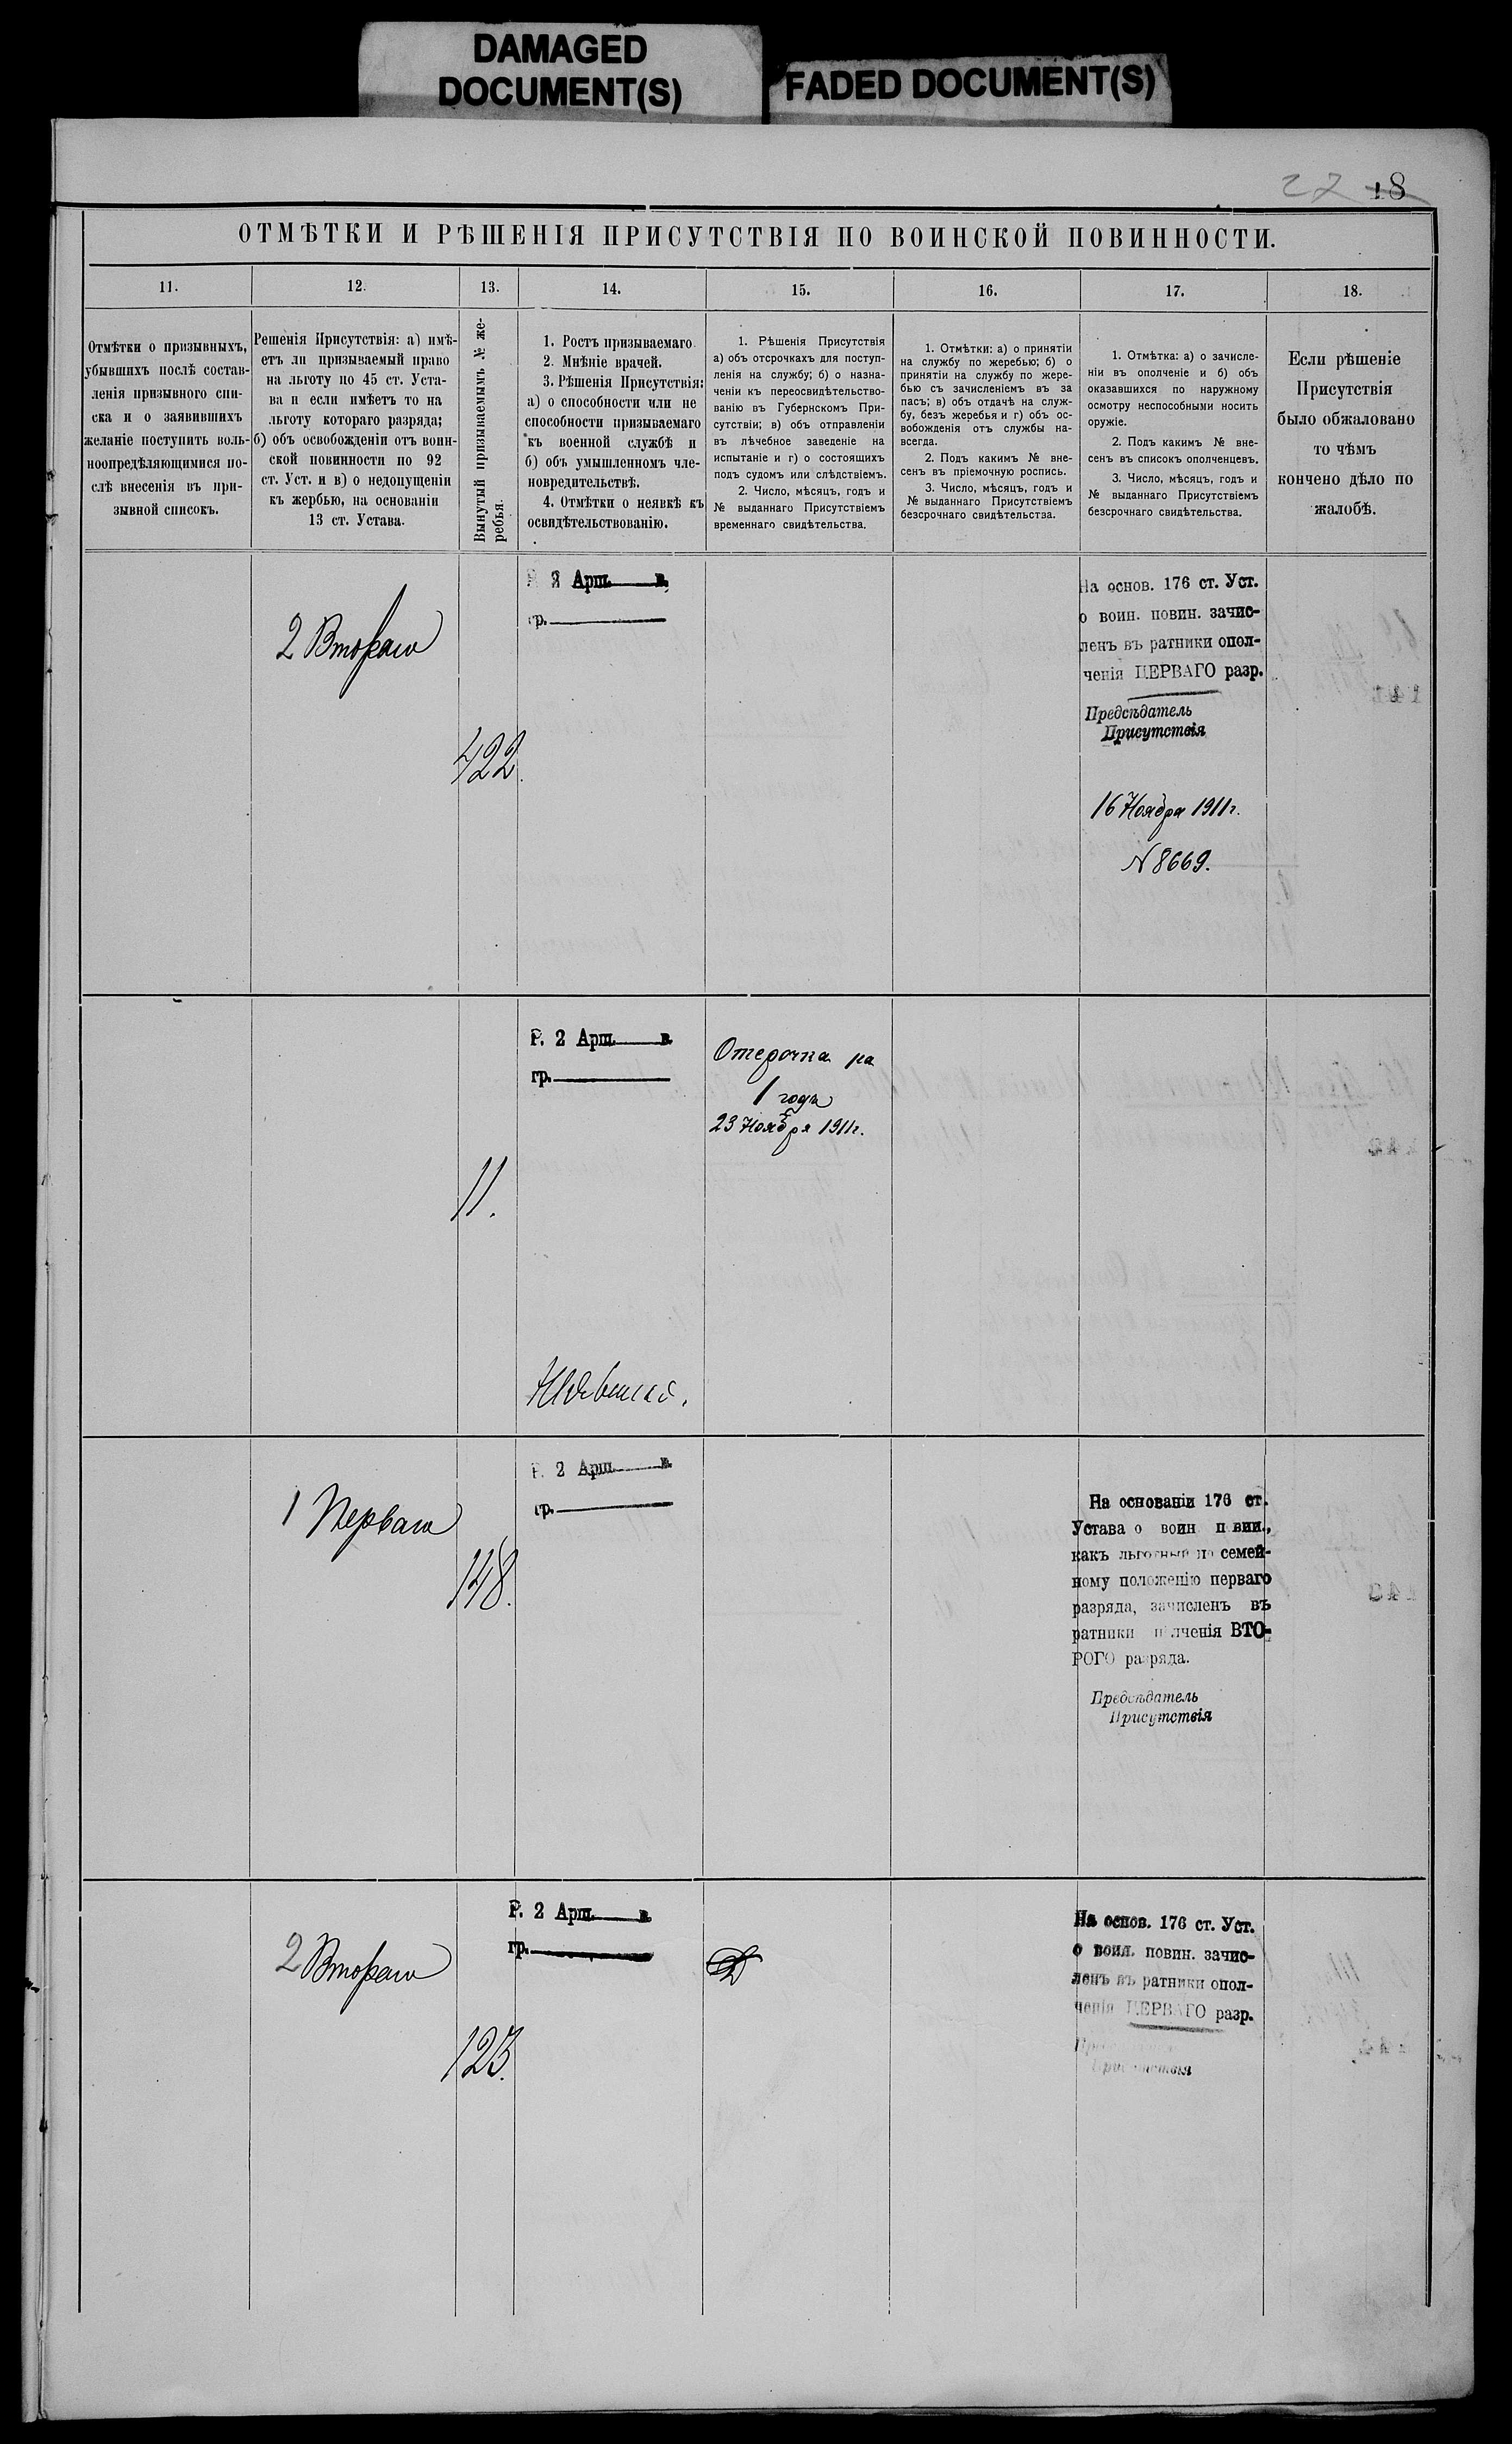 DAMAGED
DOCUMENT(S)
FADED DOCUMENT(S)
27 18
ОТМѢТКИ И РѢШЕНІЯ ПРИСУТСТВІЯ ПО ВОИНСКОЙ ПОВИННОСТИ.
11.
12.
13.
14.
15.
16.
17.
18.
Отмѣтки о призывныхъ,
убывшихъ послѣ состав-
ленія призывного спи-
ска и о заявившихъ
желаніе поступить воль-
ноопредѣляющимися по-
слѣ внесенія въ при-
зывной списокъ.
Решенія Присутствія: а) имѣ-
етъ ли призываемый право
на льготу по 45 ст. Уста-
ва и если имѣетъ то на
льготу котораго разряда;
б) объ освобожденіи отъ воин-
ской повинности по 92
ст. Уст. и в) о недопущеніи
къ жербью, на основаніи
13 ст. Устава.
Вынутый призываемымъ № же-
ребья.
1. Ростъ призываемаго
2. Мнѣніе врачей.
3. Рѣшенія Присутствія:
а) о способности или не
способности призываемаго
къ военной службѣ и
б) объ умышленномъ чле-
новредительствѣ.
4. Отмѣтки о неявкѣ къ
освидѣтельствованію.
1. Рѣшенія Присутствія
а) объ отсрочкахъ для поступ-
ленія на службу; б) о назна-
ченіи къ переосвидѣтельство-
ванію въ Губернскомъ При-
сутствіи; в) объ отправленіи
въ лѣчебное заведеніе на
испытаніе и г) о состоящихъ
подъ судомъ или слѣдствіемъ.
2. Число, мѣсяцъ, годъ и
№ выданнаго Присутствіемъ
временнаго свидѣтельства.
1. Отмѣтки: а) о принятіи
на службу по жеребью; б) о
принятіи на службу по жере-
бью съ зачисленіемъ въ за
пасъ; в) объ отдачѣ на служ-
бу, безъ жеребья и г) объ ос-
вобожденія отъ службы на-
всегда.
2. Подъ какимъ № вне-
сенъ въ пріемочную роспись.
3. Число, мѣсяцъ, годъ и
№ выданнаго Присутствіемъ
безсрочнаго свидѣтельства.
1. Отмѣтка: а) о зачисле-
ніи въ ополченіе и б) объ
оказавшихся по наружному
осмотру неспособными носить
оружіе.
2. Подъ какимъ № вне-
сенъ въ списокъ ополченцевъ.
3. Число, мѣсяцъ, годъ и
№ выданнаго Присутствіемъ
безсрочнаго свидѣтельства.
Если рѣшеніе
Присутствія
было обжаловано
то чѣмъ
кончено дѣло по
жалобѣ.
2 Втораго
422.
2 Арш. в.
гр.
На основ. 176 ст. Уст.
о воин. повин. зачис-
ленъ въ ратники опол-
ченія ПЕРВАГО разр.
Предсѣдатель
Присутствія
16 Ноября 1911г.
N 8669.
11.
Р. 2 Арш. в.
гр.
Отсрочка на
1 годъ
23 Ноября 1911г.
1 Перваго
148.
Р. 2 Арш. в.
гр.
На основаніи 176 ст.
Устава о воин повин.,
какъ льготный по семей-
ному положенію перваго
разряда, зачисленъ въ
ратники ополченія ВТО-
РОГО разряда.
Предсѣдатель
Присутствія
2 Втораго
123.
Р. 2 Арш. в.
гр.
На основ. 176 ст. Уст.
о воин. повин. зачис-
ленъ въ ратники опол-
ченія ПЕРВАГО разр.
Присутствія